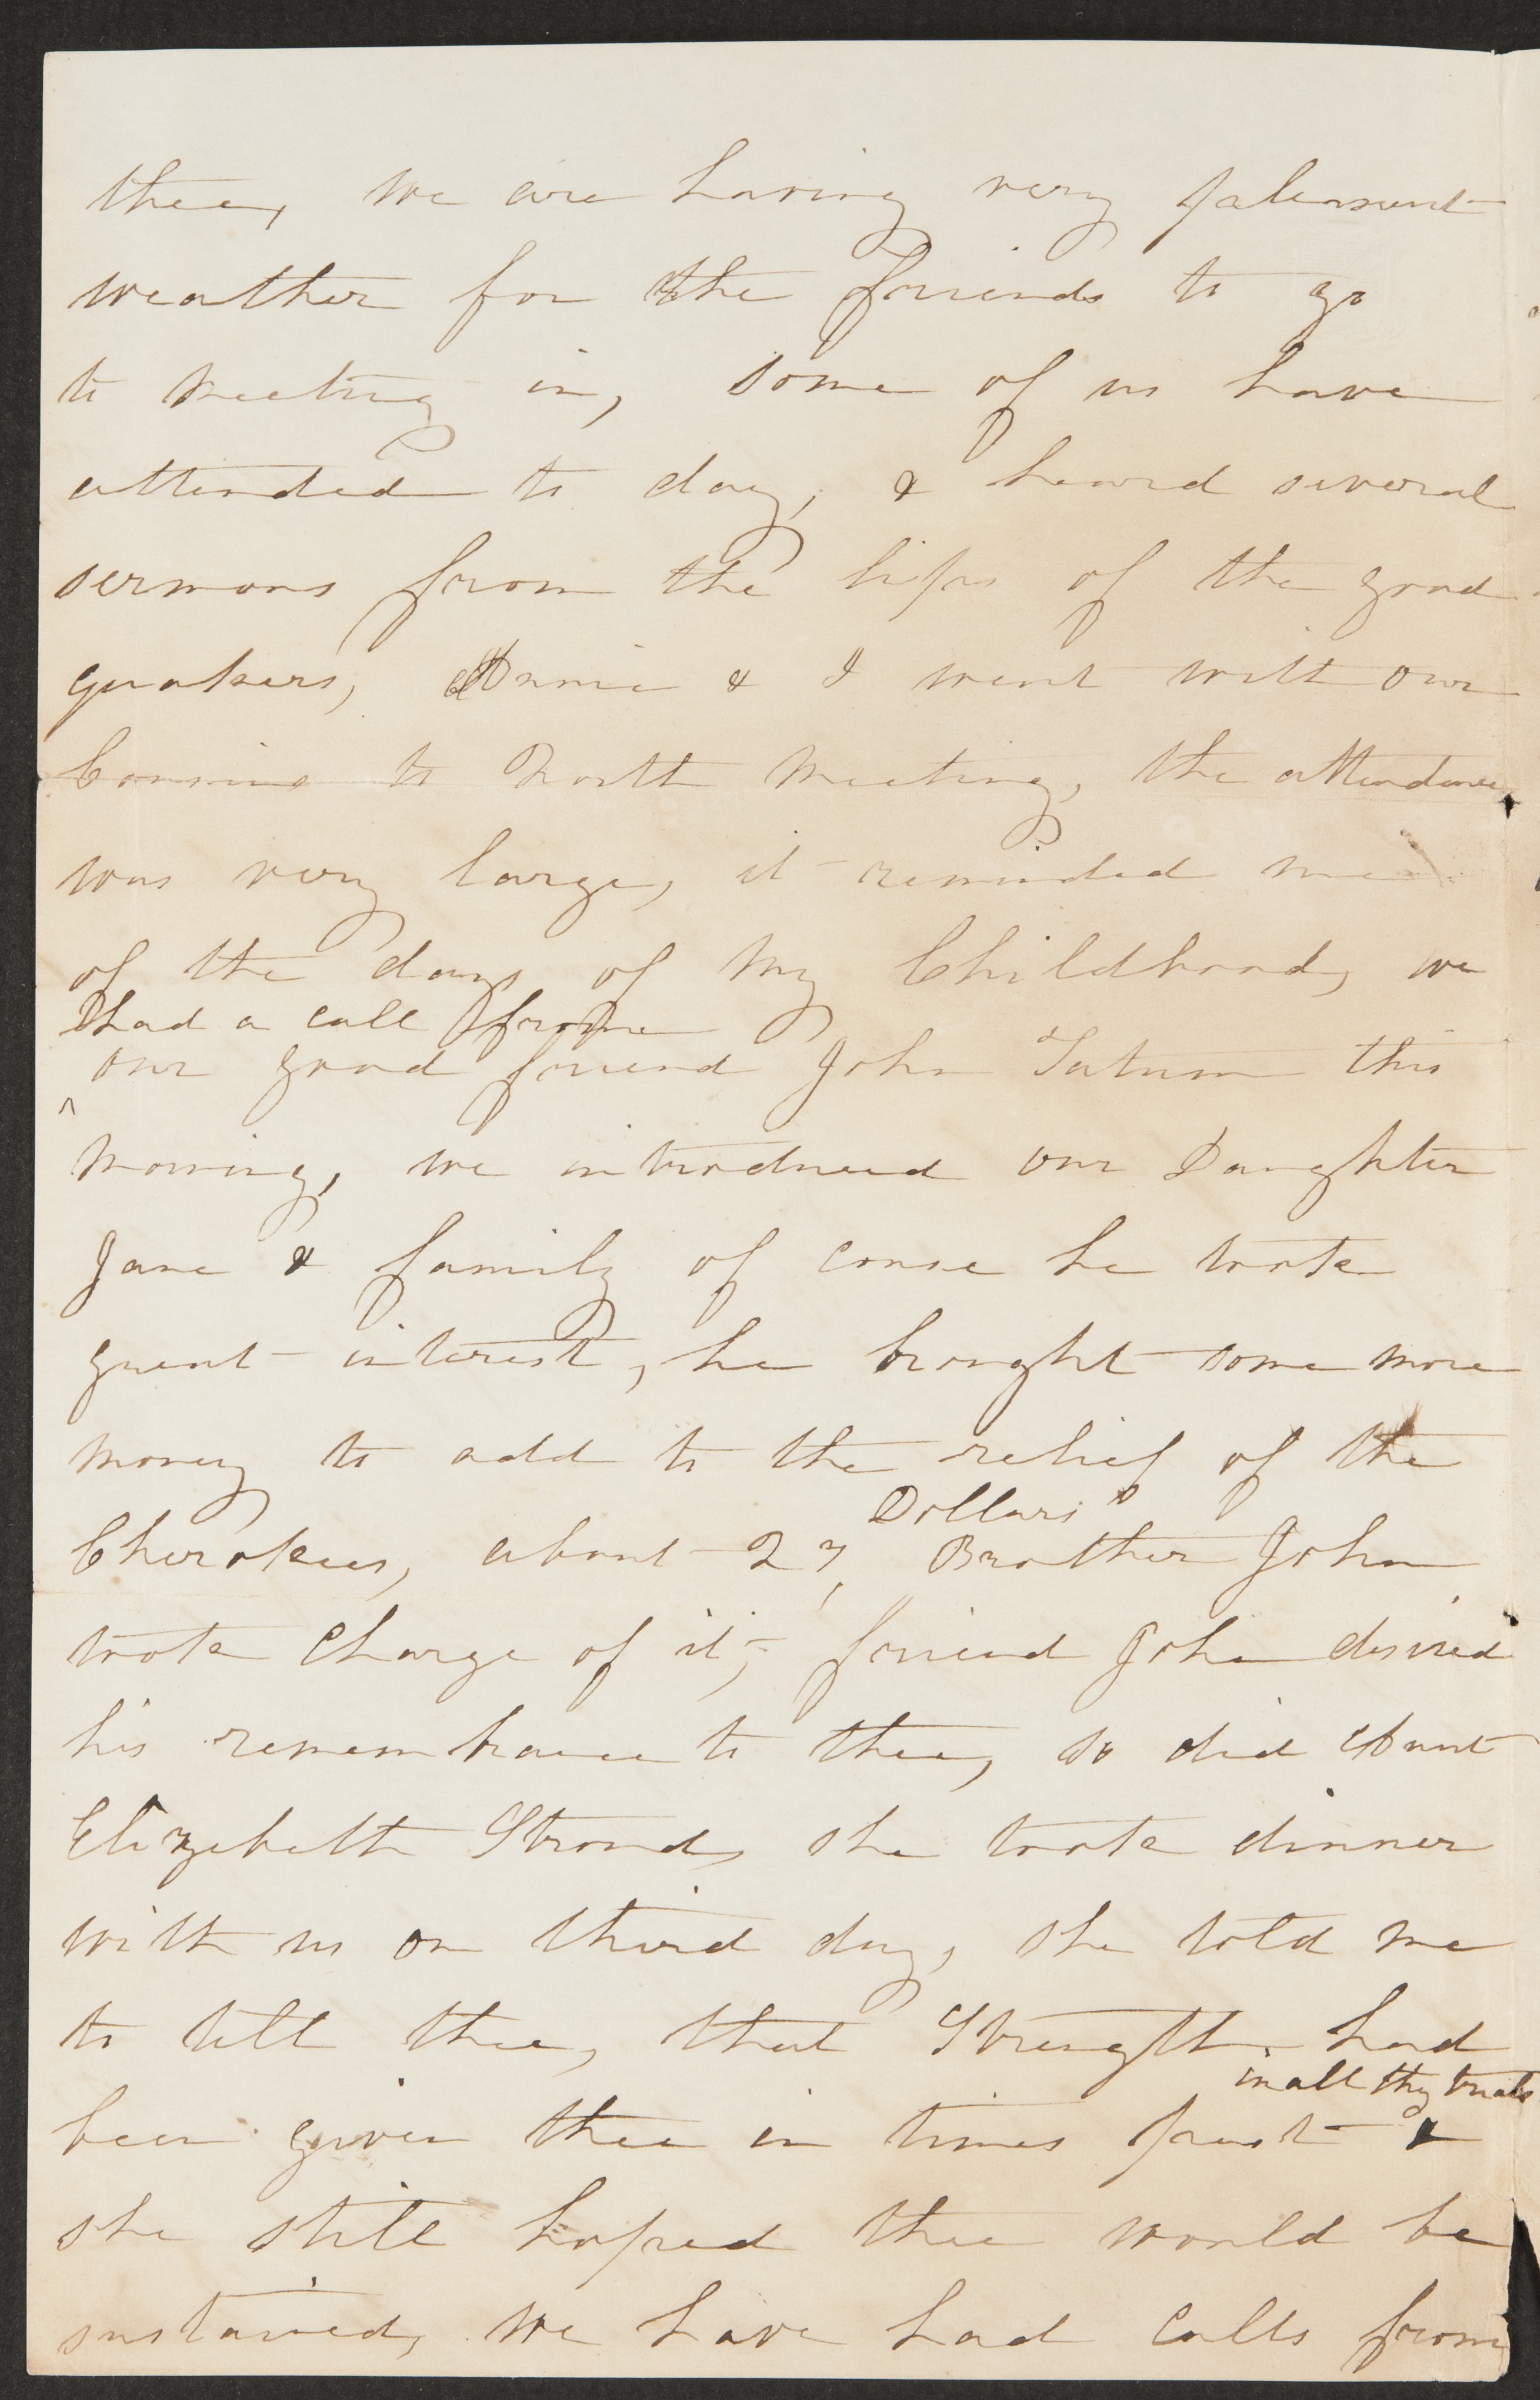 thee, we are having very pleasent
weather for the friends to go
to meeting in, some of us have
attended to day, & heard several
sermons from the lips of the good
quakers, Annie & I went with our
Cousins to North Meeting, the attendance
was very large, it reminded me
of the days of my Childhood, we
had a call from
^ our good friend John Tatum this
morning, we introduced our Daughter
Jane & family of corse he took
great interest, he brought some more
money to add to the relief of the
Dollars
Cherokees, about 27, Brother John
took Charge of it, friend John desired
his remembrance to thee, so did Aunt
Elizebeth Stroud, she took dinner
with us on third day, she told me
to tell thee, that Strength had
in all thy trials
been given thee in times past &
she still hoped thee would be
sustained, We have had calls from